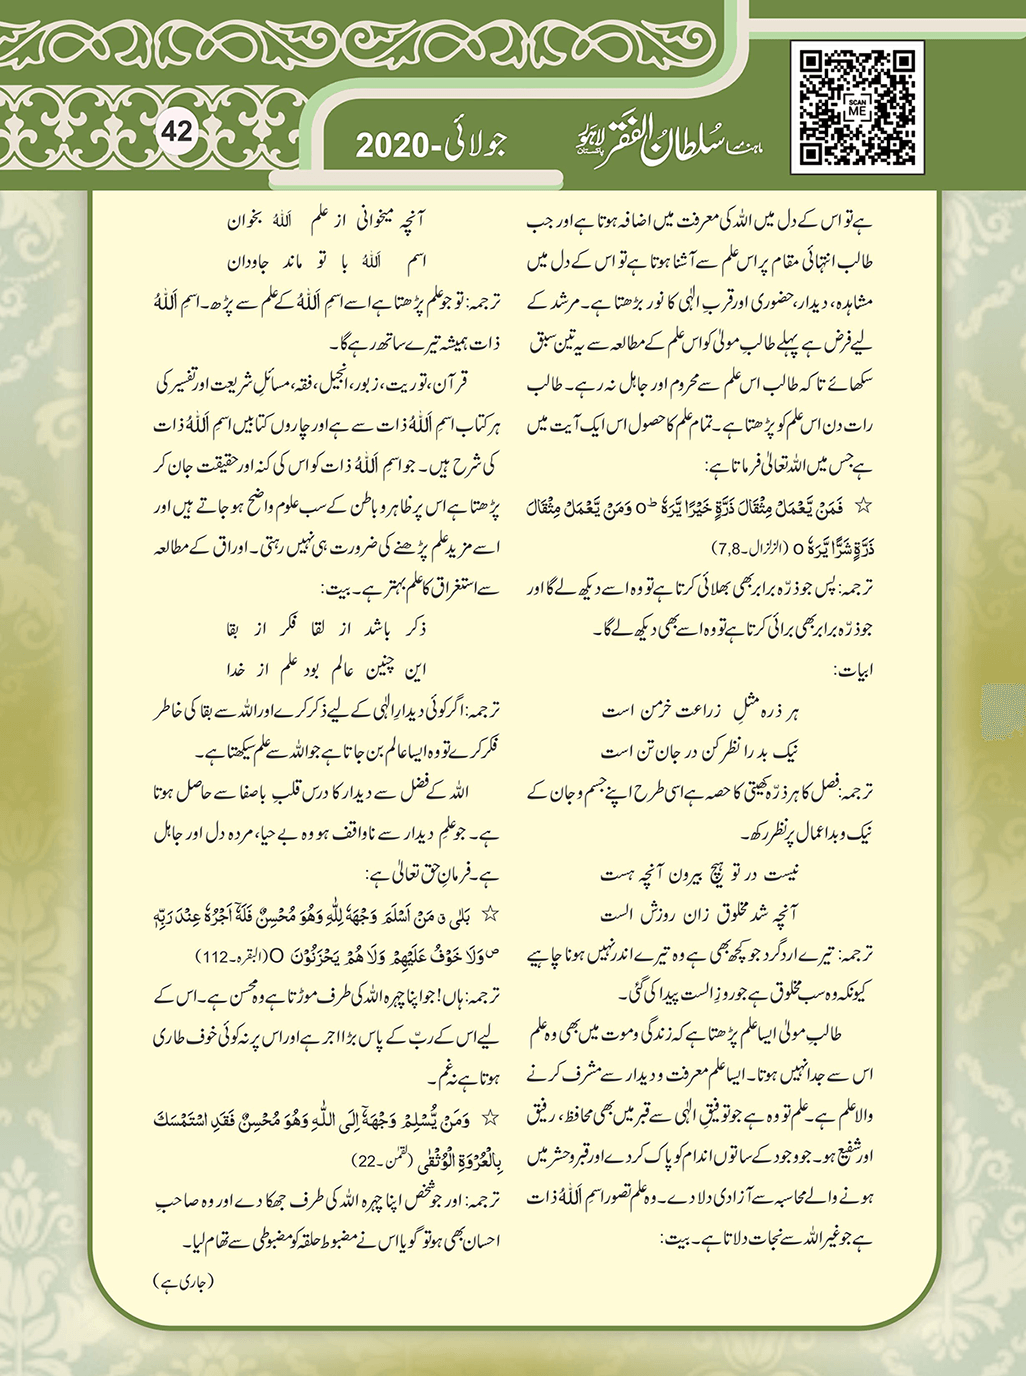 42
جولائی-2020
ماہنامہ سلطان الفقر لاہور پاکستان
SCAN
ME
ہے تو اس کے دل میں اللہ کی معرفت میں اضافہ ہوتا ہے اور جب
طالب انتہائی مقام پر اس علم سے آشنا ہوتا ہے تو اس کے دل میں
مشاہدہ، دیدار، حضوری اور قربِ الٰہی کا نور بڑھتا ہے۔ مرشد کے
لیے فرض ہے پہلے طالبِ مولیٰ کو اس علم کے مطالعہ سے یہ تین سبق
سکھائے تاکہ طالب اس علم سے محروم اور جاہل نہ رہے۔ طالب
رات دن اس علم کو پڑھتا ہے۔ تمام علم کا حصول اس ایک آیت میں
ہے جس میں اللہ تعالیٰ فرماتا ہے:
☆ فَمَنْ يَّعْمَلْ مِثْقَالَ ذَرَّةٍ خَيْرًا يَّرَهٗ ط o وَمَنْ يَّعْمَلْ مِثْقَالَ
ذَرَّةٍ شَرًّا يَّرَهٗ o (الزلزال۔7,8)
ترجمہ: پس جو ذرّہ برابر بھی بھلائی کرتا ہے تو وہ اسے دیکھ لے گا اور
جو ذرّہ برابر بھی برائی کرتا ہے تو وہ اسے بھی دیکھ لے گا۔
ابیات:
ہر ذرہ مثلِ زراعت خرمن است
نیک بد را نظر کن در جان تن است
ترجمہ: فصل کا ہر ذرّہ کھیتی کا حصہ ہے اسی طرح اپنے جسم و جان کے
نیک و بد اعمال پر نظر رکھ۔
نیست در تو ہیچ بیرون آنچہ ہست
آنچہ شد مخلوق زان روزش الست
ترجمہ: تیرے اردگرد جو کچھ بھی ہے وہ تیرے اندر نہیں ہونا چاہیے
کیونکہ وہ سب مخلوق ہے جو روزِ الست پیدا کی گئی۔
طالبِ مولیٰ ایسا علم پڑھتا ہے کہ زندگی و موت میں بھی وہ علم
اس سے جدا نہیں ہوتا۔ ایسا علم معرفت و دیدار سے مشرف کرنے
والا علم ہے۔ علم تو وہ ہے جو توفیقِ الٰہی سے قبر میں بھی محافظ، رفیق
اور شفیع ہو۔ جو وجود کے ساتوں اندام کو پاک کر دے اور قبر و حشر میں
ہونے والے محاسبہ سے آزادی دلا دے۔ وہ علم تصور اسمِ اَللّٰہُ ذات
ہے جو غیر اللہ سے نجات دلاتا ہے۔ بیت:
آنچہ میخوانی از علم اَللّٰہُ بخوان
اسم اَللّٰہُ با تو ماند جاودان
ترجمہ: تو جو علم پڑھتا ہے اسے اسمِ اَللّٰہُ کے علم سے پڑھ۔ اسمِ اَللّٰہُ
ذات ہمیشہ تیرے ساتھ رہے گا۔
قرآن، توریت، زبور، انجیل، فقہ، مسائلِ شریعت اور تفسیر کی
ہر کتاب اسمِ اَللّٰہُ ذات سے ہے اور چاروں کتابیں اسمِ اَللّٰہُ ذات
کی شرح ہیں۔ جو اسمِ اَللّٰہُ ذات کو اس کی کنہ اور حقیقت جان کر
پڑھتا ہے اس پر ظاہر و باطن کے سب علوم واضح ہو جاتے ہیں اور
اسے مزید علم پڑھنے کی ضرورت ہی نہیں رہتی۔ اوراق کے مطالعہ
سے استغراق کا علم بہتر ہے۔ بیت:
ذکر باشد از لقا فکر از بقا
این چنین عالم بود علم از خدا
ترجمہ: اگر کوئی دیدارِ الٰہی کے لیے ذکر کرے اور اللہ سے بقا کی خاطر
فکر کرے تو وہ ایسا عالم بن جاتا ہے جو اللہ سے علم سیکھتا ہے۔
اللہ کے فضل سے دیدار کا درس قلبِ باصفا سے حاصل ہوتا
ہے۔ جو علمِ دیدار سے ناواقف ہو وہ بے حیا، مردہ دل اور جاہل
ہے۔ فرمانِ حق تعالیٰ ہے:
☆ بَلٰى ق مَنْ اَسْلَمَ وَجْهَهٗ لِلّٰهِ وَهُوَ مُحْسِنٌ فَلَهٗٓ اَجْرُهٗ عِنْدَ رَبِّهٖ
ص وَلَا خَوْفٌ عَلَيْهِمْ وَلَا هُمْ يَحْزَنُوْنَ O (البقرہ۔112)
ترجمہ: ہاں! جو اپنا چہرہ اللہ کی طرف موڑتا ہے وہ محسن ہے۔ اس کے
لیے اس کے ربّ کے پاس بڑا اجر ہے اور اس پر نہ کوئی خوف طاری
ہوتا ہے نہ غم۔
☆ وَمَنْ يُّسْلِمْ وَجْهَهٗٓ اِلَى اللّٰهِ وَهُوَ مُحْسِنٌ فَقَدِ اسْتَمْسَكَ
بِالْعُرْوَةِ الْوُثْقٰى (لقمٰن۔22)
ترجمہ: اور جو شخص اپنا چہرہ اللہ کی طرف جھکا دے اور وہ صاحبِ
احسان بھی ہو تو گویا اس نے مضبوط حلقہ کو مضبوطی سے تھام لیا۔
(جاری ہے)